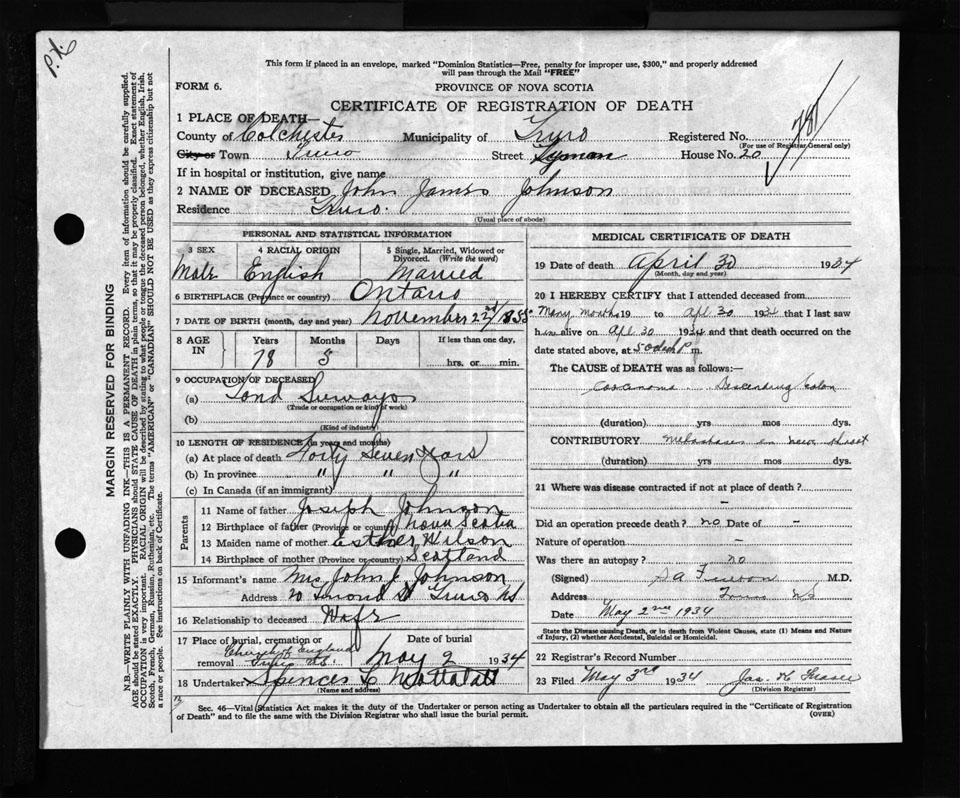 P.X.
This form if placed in an envelope, marked "Dominion Statistics—Free, penalty for improper use, $300," and properly addressed
will pass through the Mail "FREE"
FORM 6.
PROVINCE OF NOVA SCOTIA
CERTIFICATE OF REGISTRATION OF DEATH
1 PLACE OF DEATH—
County of Colchester Municipality of Truro Registered No. 781
(For use of Registrar General only)
City or Town Truro Street Lyman House No. 20
If in hospital or institution, give name
2 NAME OF DECEASED John James Johnson
Residence Truro.
(Usual place of abode)
PERSONAL AND STATISTICAL INFORMATION
3 SEX 4 RACIAL ORIGIN 5 Single, Married, Widowed or Divorced. (Write the word)
Male English Married
6 BIRTHPLACE (Province or country) Ontario
7 DATE OF BIRTH (month, day and year) November 22nd/1855
8 AGE IN Years Months Days If less than one day,
78 5 hrs. or min.
9 OCCUPATION OF DECEASED
(a) Land
(Trade or occupation or kind of work)
(b)
(Kind of industry)
10 LENGTH OF RESIDENCE (in years and months)
(a) At place of death Forty Seven Years
(b) In province " " "
(c) In Canada (if an immigrant)
Parents
11 Name of father Joseph Johnson
12 Birthplace of father (Province or country) Nova Scotia
13 Maiden name of mother Esther Wilson
14 Birthplace of mother (Province or country) Scotland
15 Informant's name Mrs John J. Johnson
Address 20 St Truro NS
16 Relationship to deceased Wife
17 Place of burial, cremation or removal Date of burial
Church of England
Truro NS. May 2 1934
18 Undertaker Spencer
(Name and address)
MEDICAL CERTIFICATE OF DEATH
19 Date of death April 30 1934
(Month, day and year)
20 I HEREBY CERTIFY that I attended deceased from
Many months 19 to Apl 30 1934 that I last saw
him alive on Apl 30 1934 and that death occurred on
the date stated above, at P m.
The CAUSE of DEATH was as follows:—
Carcinoma Descending Colon
(duration) yrs mos dys.
CONTRIBUTORY Metastases in
(duration) yrs. mos dys.
21 Where was disease contracted if not at place of death?
–
Did an operation precede death? no Date of –
Nature of operation –
Was there an autopsy? no
(Signed) M.D.
Address Truro NS
Date May 2nd 1934
State the Disease causing Death, or in death from Violent Causes, state (1) Means and Nature
of Injury, (2) whether Accidental, Suicidal or Homicidal.
22 Registrar's Record Number
23 Filed May 3rd 1934 Jas.
(Division Registrar)
Sec. 46—Vital Statistics Act makes it the duty of the Undertaker or person acting as Undertaker to obtain all the particulars required in the "Certificate of Registration
of Death" and to file the same with the Division Registrar who shall issue the burial permit. (OVER)
MARGIN RESERVED FOR BINDING
N.B.—WRITE PLAINLY WITH UNFADING INK—THIS IS A PERMANENT RECORD. Every item of information should be carefully supplied.
AGE should be stated EXACTLY. PHYSICIANS should STATE CAUSE OF DEATH in plain terms, so that it may be properly classified. Exact statement of
OCCUPATION is very important. RACIAL ORIGIN will be described by stating to what people or tongue the deceased person belonged, whether English, Irish,
Scotch, French, German, Russian, Ruthenian, etc. The terms "AMERICAN" or "CANADIAN" SHOULD NOT BE USED as they express citizenship but not
a race or people. See instructions on back of Certificate.